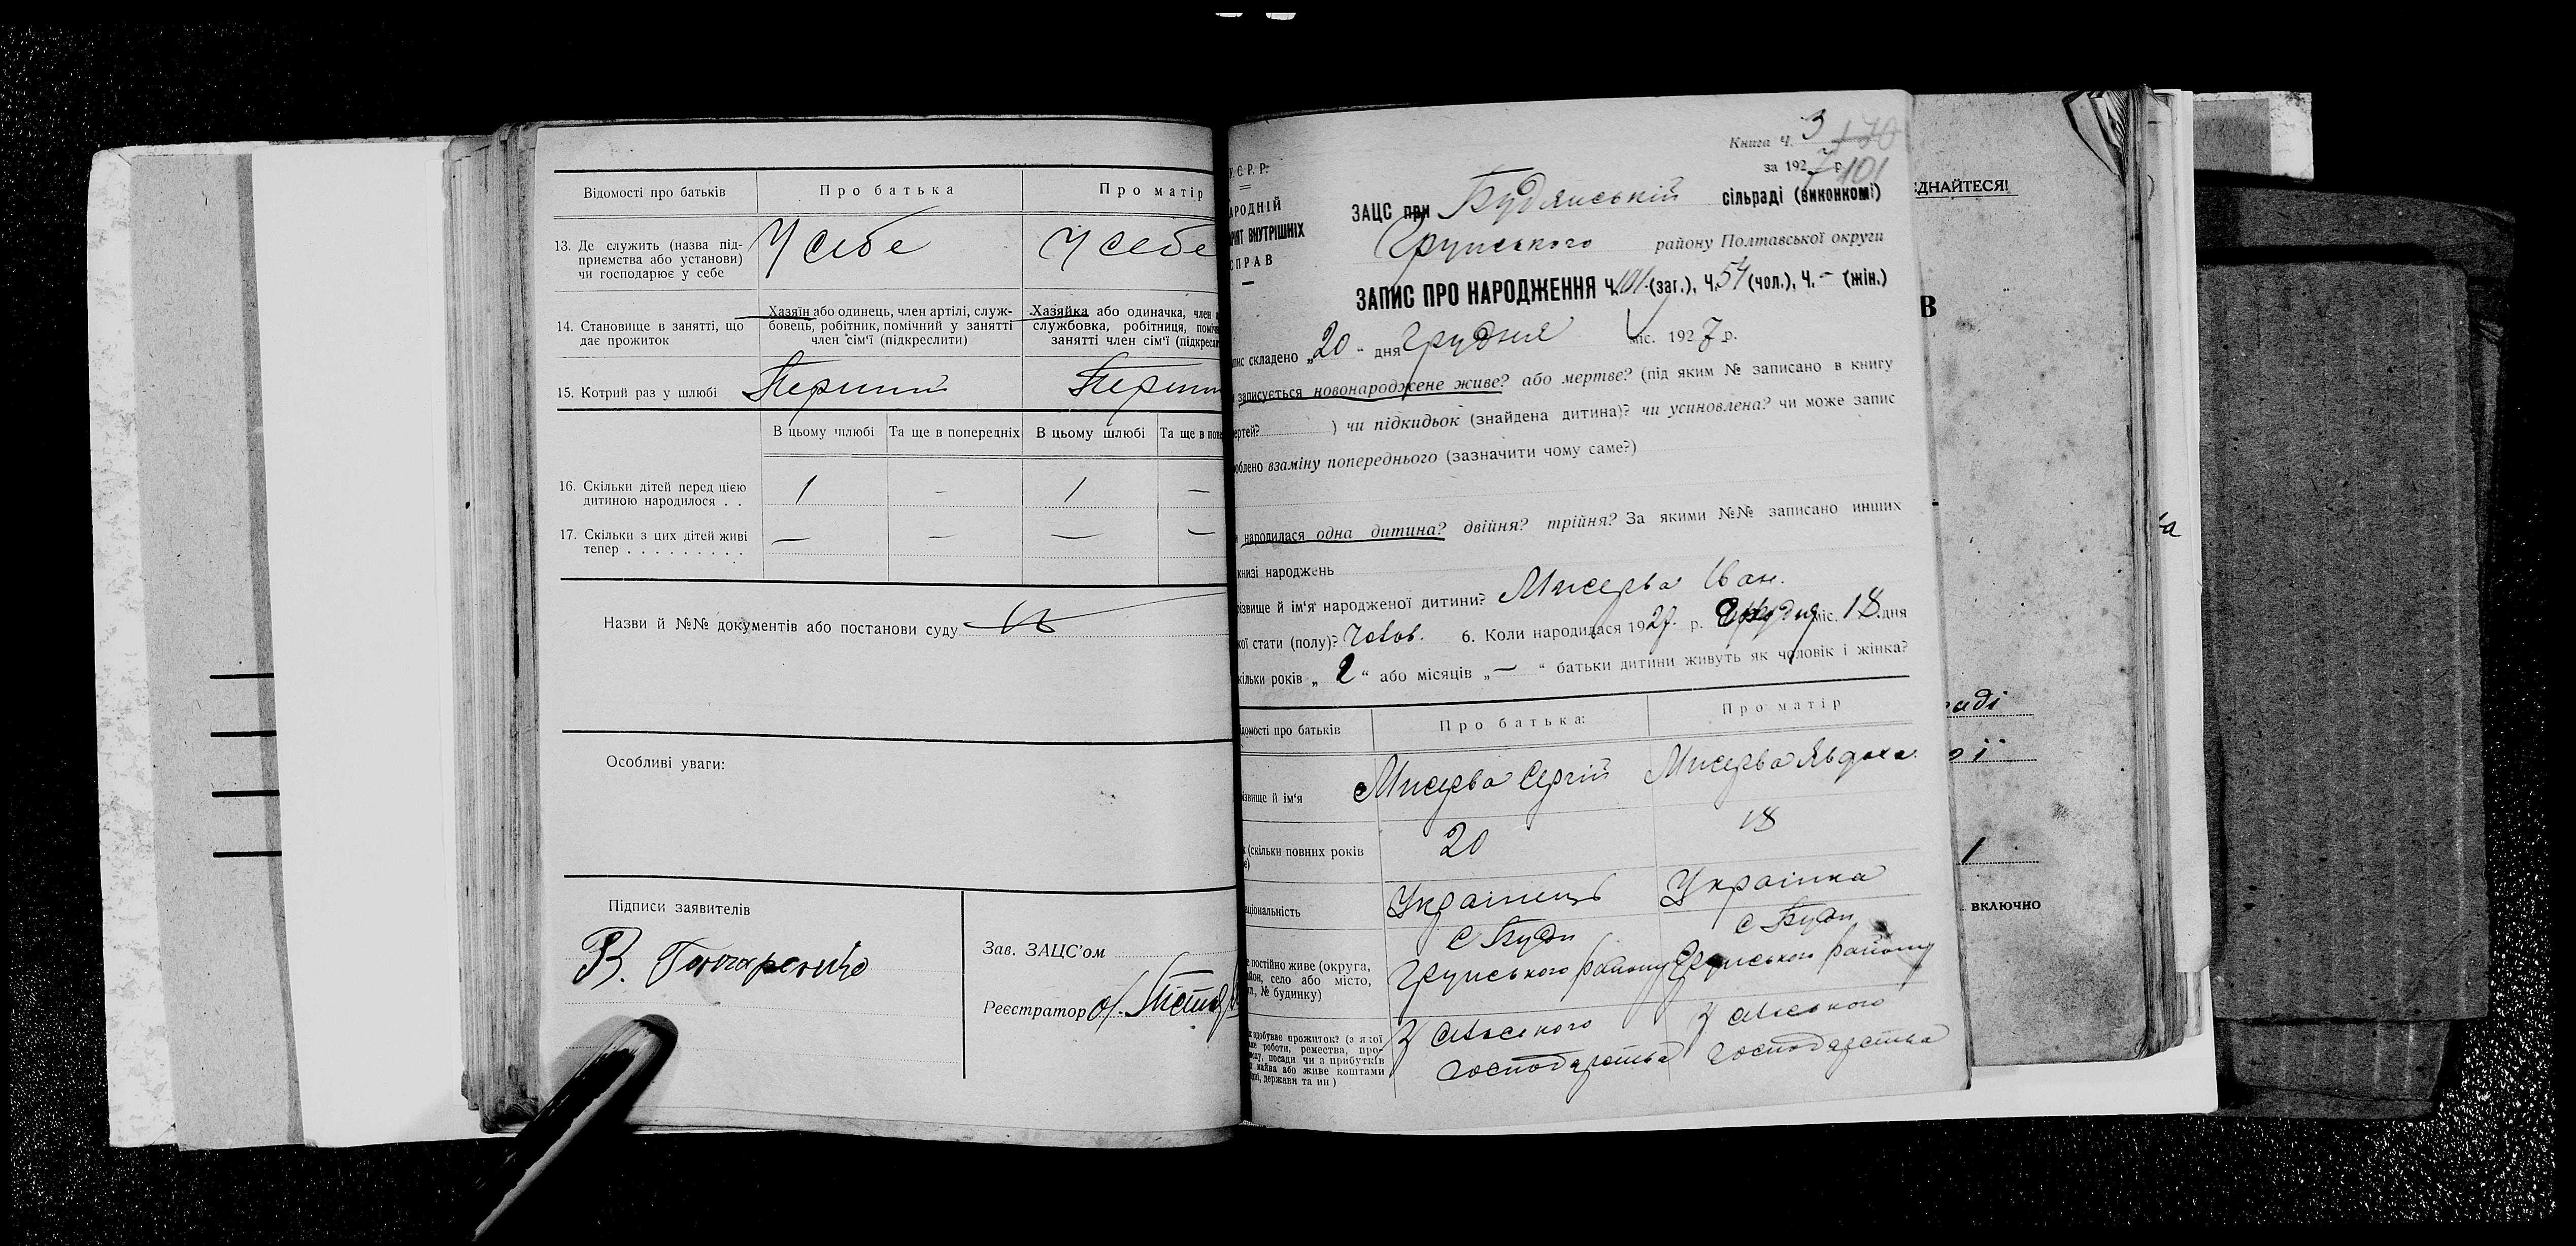 Відомості про батьків
Про батька
Про матір
13. Де служить (назва під-
приємства або установи)
чи господарює у себе
У себе
У себе
14. Становище в занятті, що
дає прожиток
Хазяїн або одинець, член артілі, служ-
бовець, робітник, помічний у занятті
член сім'ї (підкреслити)
Хазяйка або одиначка, член
службовка, робітниця, поміч
занятті член сім'ї (підкресли
15. Котрий раз у шлюбі
Перший
Перши
В цьому шлюбі
Та ще в попередніх
В цьому шлюбі
Та ще в попе
16. Скільки дітей перед цією
дитиною народилося . .
1 - 1 -
17. Скільки з цих дітей живі
тепер . . . . . . . . .
- - - -
Назви й №№ документів або постанови суду
Особливі уваги:
Підписи заявителів
В. Гончаренко
Зав. ЗАЦС'ом
Реєстратор
У.С.Р.Р.
АРОДНІЙ
РІЯТ ВНУТРІШНІХ
СПРАВ
Книга Ч. 3 170
за 1927 р. 101
ЗАЦС при Будянській сільраді (виконкомі)
Грунського району Полтавської округи
ЗАПИС ПРО НАРОДЖЕННЯ Ч. 101 (заг.), Ч. 54 (чол.), Ч. - (жін.)
пис складено „20" дня Грудня міс. 1927 р.
записується новонароджене живе? або мертве? (під яким № записано в книгу
ертей? ) чи підкидьок (знайдена дитина)? чи усиновлена? чи може запис
облено взаміну попереднього (зазначити чому саме?)
народилася одна дитина? двійня? трійня? За якими №№ записано инших
книзі народжень
різвище й ім'я народженої дитини? Мисерва Іван.
кої стати (полу)? Чолов. 6. Коли народилася 1927 р. Грудня міс. 18 дня
кільки років „2" або місяців „—" батьки дитини живуть як чоловік і жінка?
домості про батьків
Про батька:
Про матір
ізвище й ім'я
Мисерва Сергій
Мисерва Явдоха
(скільки повних років
20
18
аціональність
Українець
Українка
е постійно живе (округа,
йон, село або місто,
№ будинку)
с Буди
Грунського району
с Буди
Грунського району
добуває прожиток? (з якої
роботи, ремества, про-
слу, посади чи з прибутків
майва або живе коштами
держави та ин)
З сільського
господарства
З сільського
господарства
ЄДНАЙТЕСЯ!
В
раді
ої
1
включно